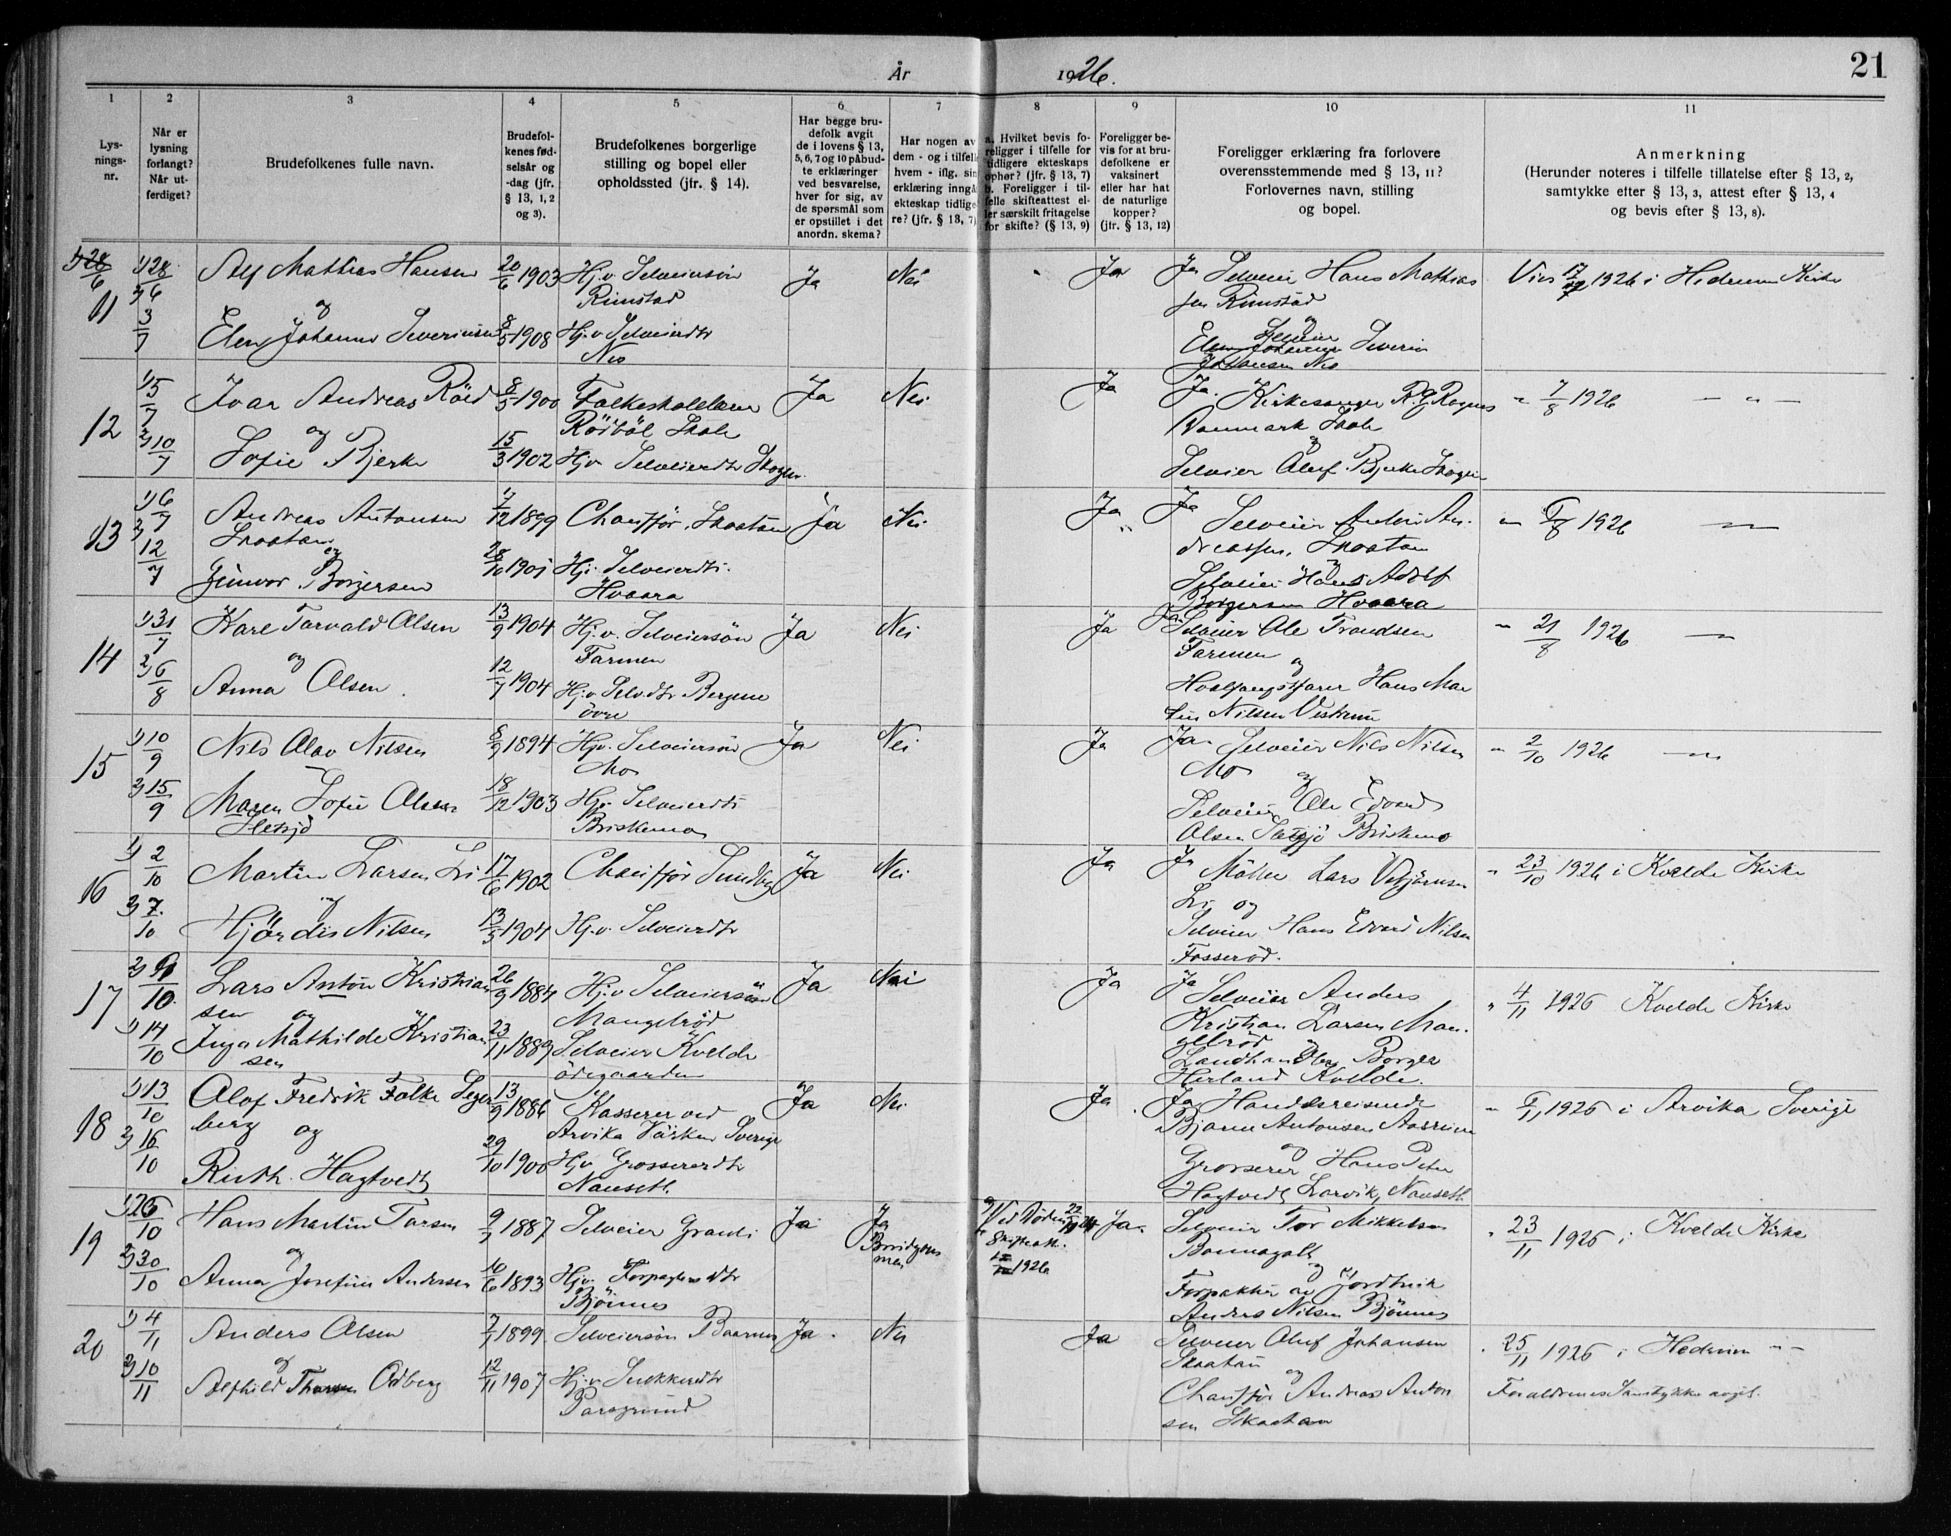 År 1926.
21
1 2 3 4 5 6 7 8 9 10 11
Lysningsnr.
Når er lysning forlangt? Når utferdiget?
Brudefolkenes fulle navn.
Brudefolkenes fødselsår og -dag (jfr. § 13, 1, 2 og 3).
Brudefolkenes borgerlige stilling og bopel eller opholdssted (jfr. § 14).
Har begge brudefolk avgit de i lovens § 13, 5, 6, 7 og 10 påbudte erklæringer ved besvarelse, hver for sig, av de spørsmål som er opstillet i det anordn. skema?
Har nogen av dem - og i tilfelle hvem - iflg. sin erklæring inngå ekteskap tidligere? (jfr. § 13, 7)
a. Hvilket bevis foreligger i tilfelle for tidligere ekteskaps ophør? (jfr. § 13, 7) b. Foreligger i tilfelle skifteattest eller særskilt fritagelse for skifte? (§ 13, 9)
Foreligger bevis for at brudefolkene er vaksinert eller har hat de naturlige kopper? (jfr. § 13, 12)
Foreligger erklæring fra forlovere overensstemmende med § 13, 11? Forlovernes navn, stilling og bopel.
Anmerkning (Herunder noteres i tilfelle tillatelse efter § 13, 2, samtykke efter § 13, 3, attest efter § 13, 4 og bevis efter § 13, 8).
11
1) 28/6 2) 3/7
Alf Mathias Hansen 20/6 1903 Hj.v. Selveiersön Rimstad Ja Nei Ja Ja Selveier Hans Mathias sen Rimstad
og
Ellen Johanne Severinsen 8/5 1908 Hj.v. Selveierdtr Nes
og Selveier Severin Johansen Nes
Vies 17/7 1926 i Hedrum Kirke
12
1) 5/7 2) 10/7
Ivar Andreas Röed 8/5 1900 Folkeskolelærer Rödböl Skole Ja Nei Ja Ja. Kirkesanger R. G. Rognes Vanmark Skole
og
Sofie Bjerke 15/3 1902 Hjv. Selveierdtr Skogen
og Selveier Oluf Bjerke Skogen
" 7/8 1926 — " —
13
1) 6/7 2) 12/7
Andreas Antonsen Skaatan Chauffør, Skaatan Ja Nei Ja Ja Selveier Anton Andreassen, Skaatan
og
Gunvor Borgersen 28/10 1901 Hj. Selveierdtr. Hvaara
og Selveier Hans Adolf Borgersen Hvaara
1926
14
1) 31/7 2) 6/8
Kare Torvald Olsen 13/9 1904 Hj.v. Selveiersön Farmen Ja Nei Ja Ja Selveier Ole Trondsen Farmen
og
Anna Olsen 12/7 1904 Hj.v. Selv.dtr Bergene övre
og Hvalfangstfarer Hans Martin Nilsen Vestrum
" 21/8 1926
15
1) 10/9 2) 15/9
Nils Olav Nilsen 8/9 1894 Hjv. Selveiersön Mo Ja Nei Ja Ja Selveier Nils Nilsen Mo
Maren Sofie Olsen 18/12 1903 Hjv. Selveierdtr Briskemo
og Selveier Ole Edvard Olsen Briskemo
" 2/10 1926
16
1) 2/10 2) 7/10
Martin Larsen Li 17/6 1902 Chauffør Sundby Ja Nei Ja Ja Møller Lars
og
Hjördis Nilsen 13/3 1904 Hj.v. Selveierdtr
Li og Selveier Hans Edvard Nilsen Fosserød.
" 23/10 1926 i Kvelde Kirke
17
14/10
Lars Anton Kristiansen 26/9 1884 Hj.v Selveiersön Mangelröd Ja Nei Ja Ja Selveier Anders Kristian Larsen Mangelröd
og
Inga Mathilde Kristiansen 23/11 1889 Selveier Kvelde ödegaarden
og Landhandler Borger Herland Kvelde.
" 4/11 1926 Kvelde Kirke
18
1) 13/10 2) 16/10
Olof Fredrik Folke Segerberg 13/9 1886 Kasserer ved Arvika Värken Sverige Ja Nei Ja Ja Handelsreisende Bjarne Antonsen
og
Ruth Hagtvedt 29/10 1900 Hjv Grossererdtr Nansetl.
og Grosserer Hans Peter Hagtvedt Larvik, Nansetl.
1926 i Arvika Sverige
19
1) 26/10 2) 30/10
Hans Martin Torsen 1887 Selveier Grauli Ja Ja Brudgommen Ved Døden Skifteatt. 1926 Ja Selveier Tor Mikkelsen
og
Anna Josefine Andersen 1893 Hjv. Forpagterdtr Bjönnes
og Forpakter av jordbruk Anders Nilsen Bjönnes
" 23/11 1926 i Kvelde Kirke
20
1) 4/11 2) 10/11
Anders Olsen 1899 Selveiersön Baarnes Ja Nei Ja Selveier Oluf Johansen Skaatan
og
Alfhild Thorsen Odberg 12/11 1907 Hj.v. Snekkerdtr Porsgrund
og Chauffør Andreas Antonsen Skaatan
" 25/11 1926 i Hedrum " -
Foreldrenes Samtykke avgit.